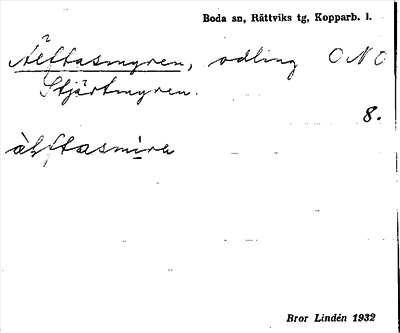 Boda sn, Rättviks tg, Kopparb. l.
Älftasmyren, odling ONO
Stjärtmyren.
8.
älftasmira
Bror Lindén 1932